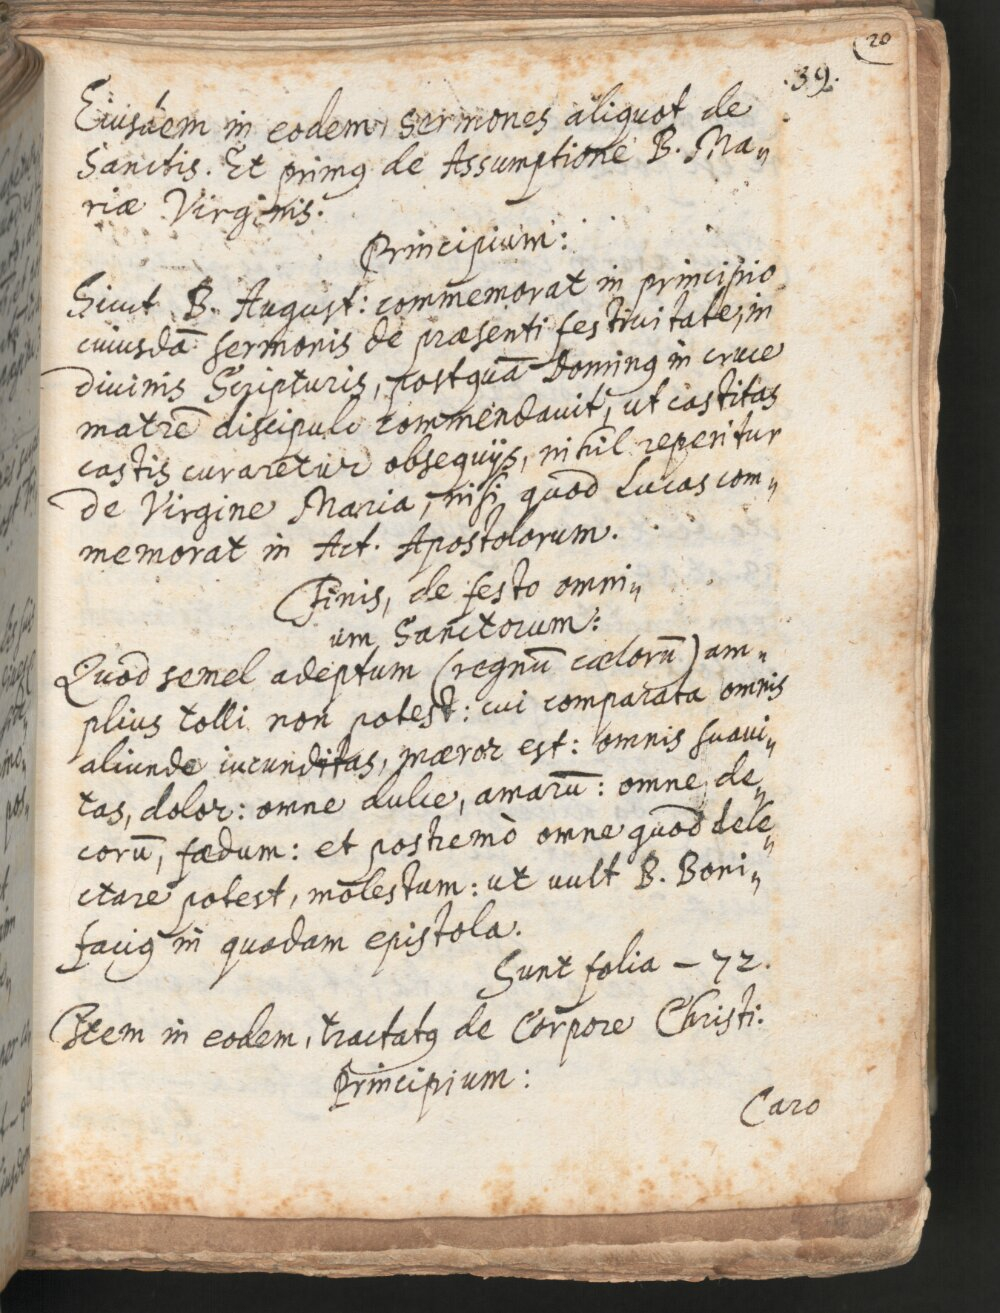 20
.39.
Eiusdem in eodem, sermones aliquot de
Sanctis. Et primꝰ de Assumptione B. Ma„
riæ Virginis.
Principium:
Sicut B. August: commemorat in principio
cuiusdā sermonis de præsenti festiuitate, in
diuinis Scripturis, postquā Dominꝰ in cruce
matrē discipulo commendauit, ut castitas
castis curaretur obsequijs, nihil reperitur
de Virgine Maria, nisi, quod Lucas com„
memorat in Act. Apostolorum.
Finis, de festo omni„
um Sanctorum:
Quod semel adeptum (regnū cælorū) am„
plius tolli non potest: cui comparata omnis
aliunde iucunditas, mæror est: omnis suaui„
tas, dolor: omne dulce, amarū: omne de„
corū, fædum: et postremò omne quod dele„
ctare potest, molestum: ut uult B. Boni„
faciꝰ in quadam epistola.
Sunt folia – 72.
Item in eodem, tractatꝰ de Corpore Christi:
Principium:
Caro